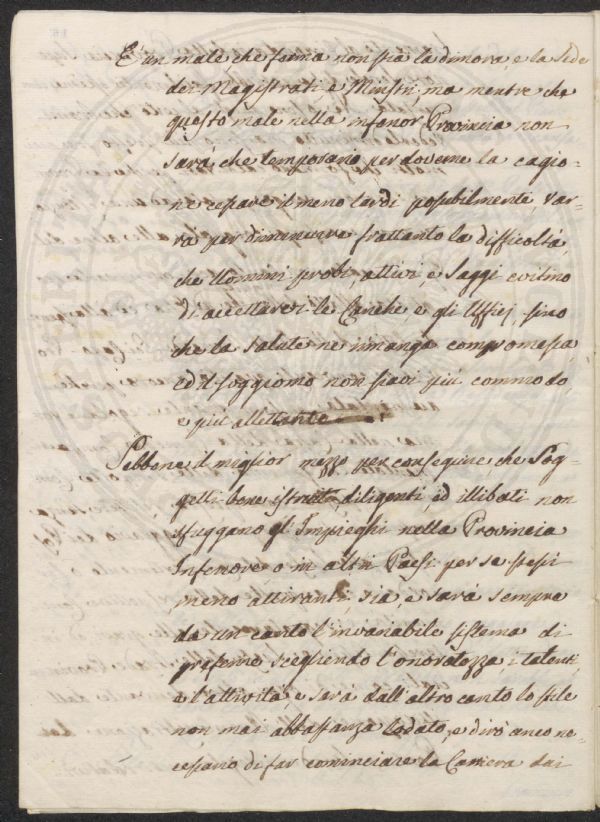 E' un male che ferma non sia la dimora, e la Sede
dei Magistrati e Ministri, ma mentre che
questo male nella inferior Provincia non
sará che temporario per doverne la cagio-
ne cessare il meno tardi possibilmente, var-
rá per diminuire frattanto la difficoltá,
che Uomini probi, attivi, e Saggi evitino
di accettarvi le Cariche, e gli Uffici, fino
che la salute ne rimanga compromessa,
ed il soggiorno non siavi piu commodo,
e piú allettante
Sebbene il miglior mezzo per conseguire che Sog-
getti bene istrutti, diligenti, ed illibati non
sfuggano gl' Impieghi nella Provincia
Inferiore o in altri Paesi per se stessi
meno attiranti sia, e sará sempre
da un canto l'invariabile sistema di
preferire scegliendo l'onoratezza, i talenti,
e l'attivitá, e sará dall'altro canto lo stile
non mai abbastanza lodato, e diró anco ne-
cessario di far cominciare la Carriera dai